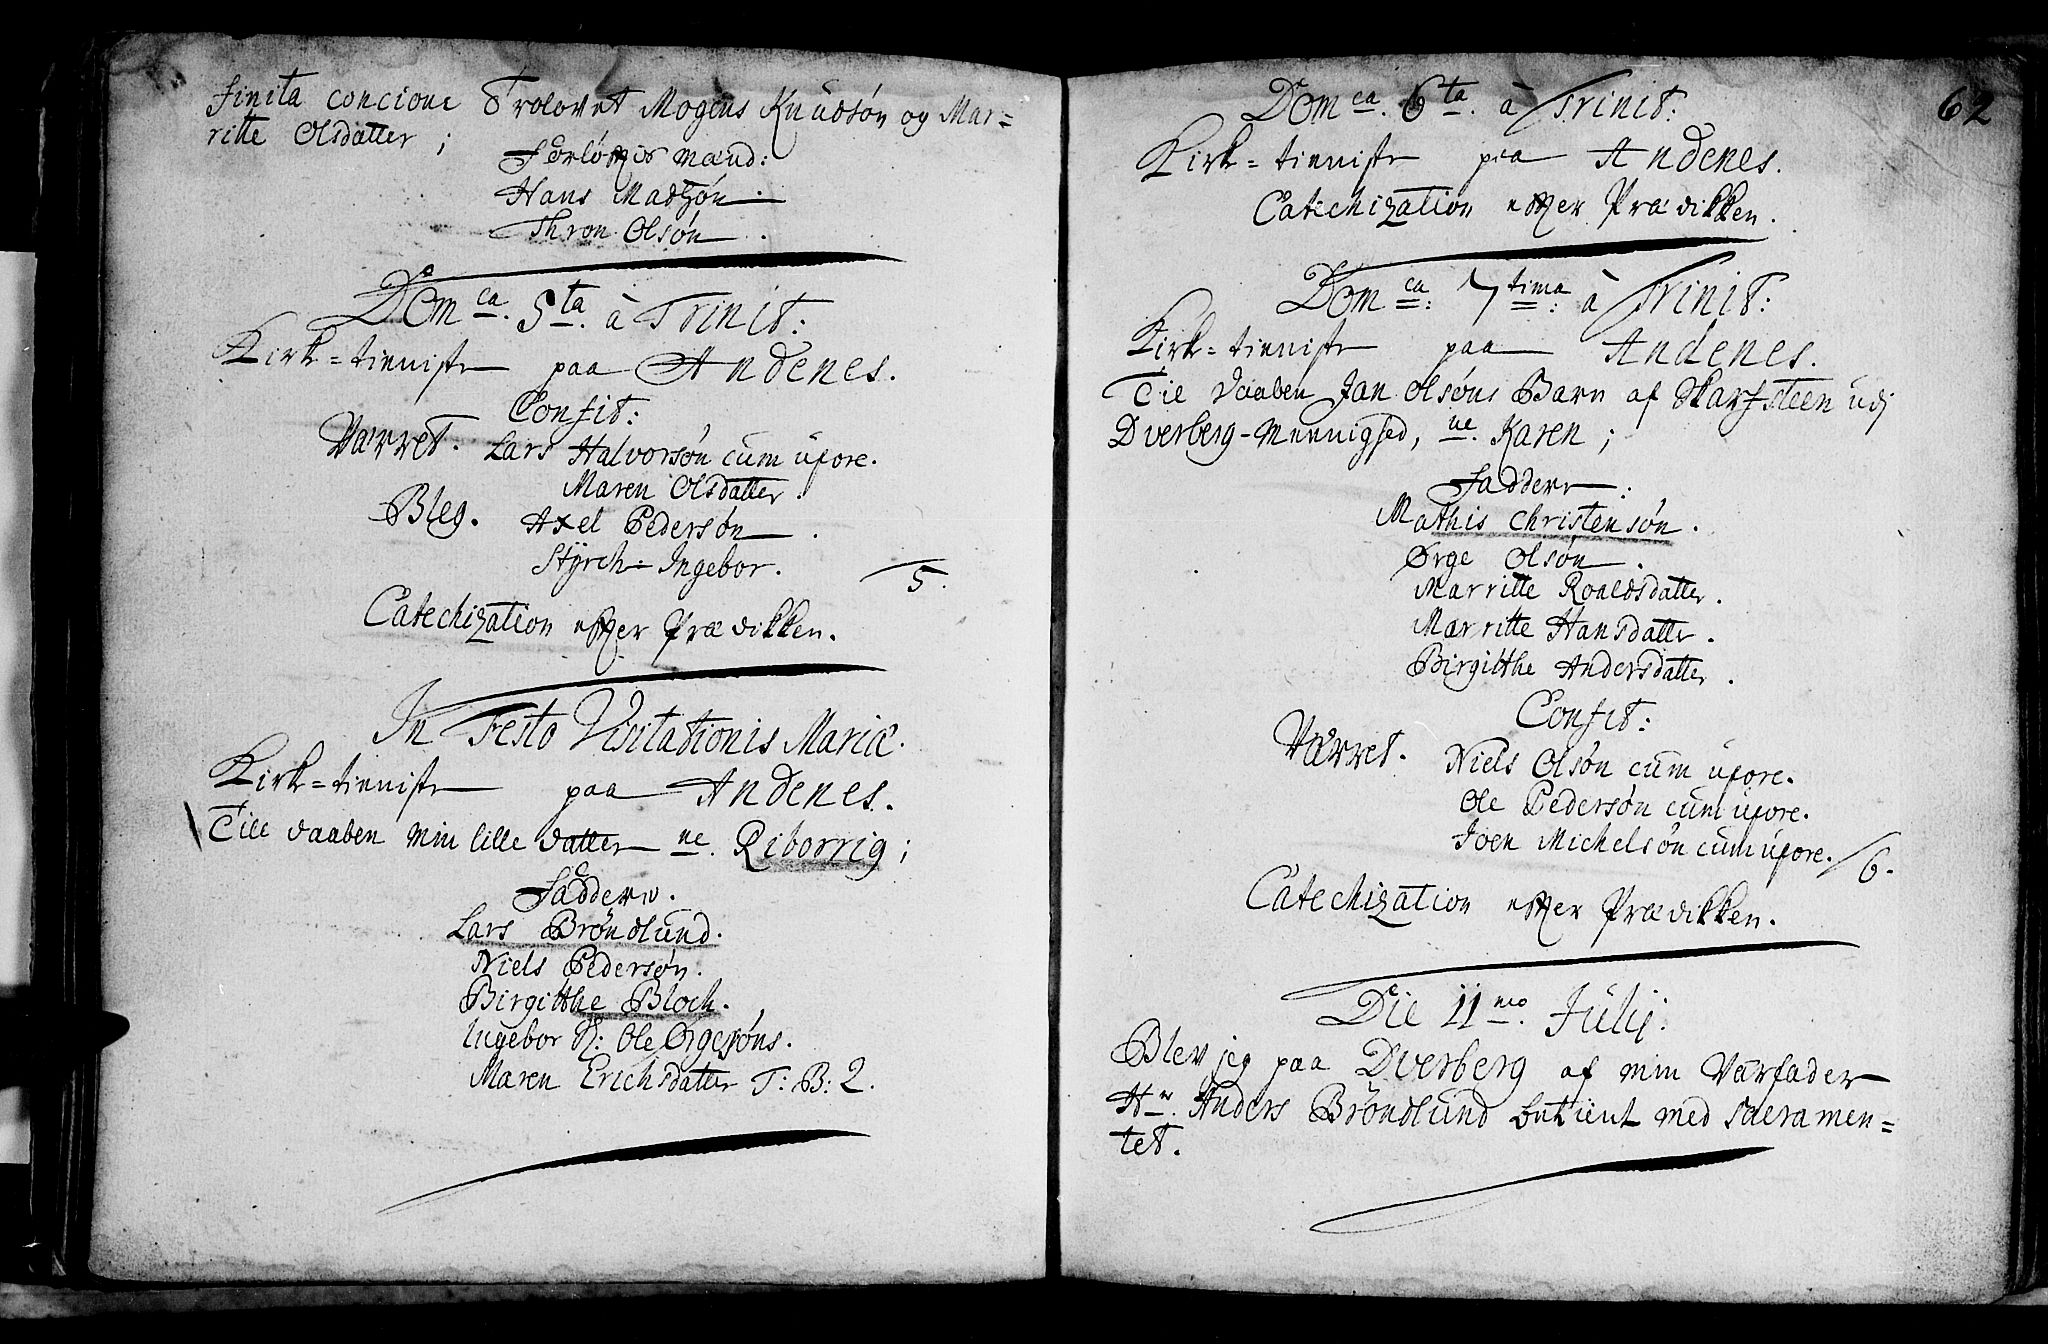 finita concione Trolovet Mogens Knudsøn og Mar=
ritte Olsdatter ;
Forløftis mænd:
Hans Madtzøn.
Thron Olsøn.
Dom ca. 5 ta. à Trinit:
Kirk=tieniste paa Andenes.
Confit:
Værret. Lars Halvorsøn cum uxore.
Maren Olsdatter.
Bleg. Axel Pedersøn.
Styrch= Ingebor. 5.
Catechization efter Prædikken.
In Festo Visitationis Mariæ.
Kirk=tieniste paa Andenes.
Till daaben min lille datter ne. Riborrig ;
Faddere.
Lars Brøndlund.
Niels Pedersøn.
Birgitthe Bloch.
Ingebor K: Ole Ørgesøns.
Maren Erichsdatter T: B: 2.
62
Dom ca. 6 ta. à Trinit:
Kirk=tieniste paa Andenes.
Catechization efter Prædikken.
Dom ca: 7 tima: à Trinit:
Kirk=tieniste paa Andenes.
Til daaben Jan Olsøns Barn af Skarfsteen udj
Dverberg-Meenighed, ne. Karen ;
Faddere:
Mathis Christensøn.
Ørge Olsøn.
Marritte Roaldsdatter.
Marritte Hansdatter.
Birgitthe Andersdatter.
Confit:
Værret. Niels Olsøn cum uxore.
Ole Pedersøn cum uxore.
Joen Michelsøn cum uxore. 6.
Catechization efter Prædikken.
Die 11 mo. Julij.
Blev jeg paa Dverberg af min Værfader
Hr. Anders Brøndlund betient med Sacramen=
tet.